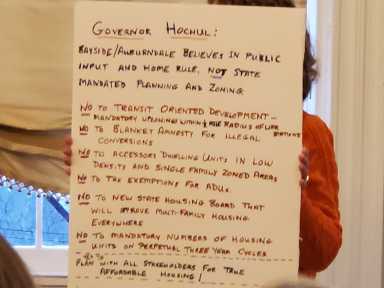 GOVERNOR HOCHUL:
BAYSIDE/AUBURNDALE BELIEVES IN PUBLIC
INPUT AND HOME RULE, NOT STATE
MANDATED PLANNING AND ZONING
NO TO TRANSIT ORIENTED DEVELOPMENT -
MANDATORY UPZONING WITHIN ½ MILE RADIUS OF LIRR STATIONS
NO TO BLANKET AMNESTY FOR ILLEGAL
CONVERSIONS
NO TO ACCESSORY DWELLING UNITS IN LOW
DENSITY AND SINGLE FAMILY ZONED AREAS
NO TO TAX EXEMPTIONS FOR ADUs
NO TO NEW STATE HOUSING BOARD THAT
WILL IMPROVE MULTI-FAMILY HOUSING
EVERYWHERE
NO TO MANDATORY NUMBERS OF HOUSING
UNITS ON PERPETUAL THREE YEAR CYCLES
PLAN WITH ALL STAKEHOLDERS FOR TRUE
AFFORDABLE HOUSING!